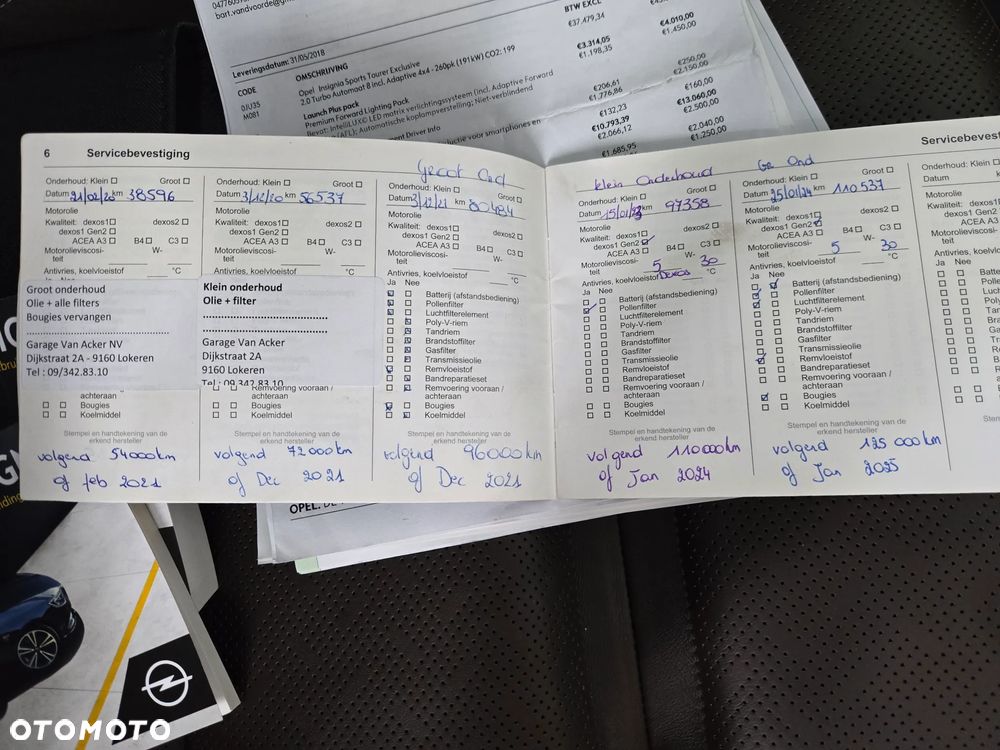 BTW EXCL
Leveringsdatum: 31/05/2018
€37.479,34
CODE
OMSCHRIJVING
€4.010,00
0JU35
Opel Insignia Sports Tourer Exclusive
€3.314,05
€1.450,00
M081
2.0 Turbo Automaat 8 incl. Adaptive 4x4 - 260pk (191kW) CO2: 199
€1.198,35
Launch Plus pack
€250,00
Premium Forward Lighting Pack
€206,61
€2.150,00
Bevat: IntelliLUX® LED matrix verlichtingssysteem (incl. Adaptive Forward
€1.776,86
(AFL); Automatische koplampverstelling; Niet-verblindend
€160,00
€132,23
€13.060,00
Driver Info
€10.793,39
€2.500,00
voor smartphones en
€2.066,12
€2.040,00
€1.685,95
€1.250,00
6 Servicebevestiging
Onderhoud: Klein Groot
Datum 21/02/20 km 38596
Motorolie
Kwaliteit: dexos1 dexos2
dexos1 Gen2
ACEA A3 B4 C3
Motorolieviscosi- W-
teit
Antivries, koelvloeistof °C
Groot onderhoud
Olie + alle filters
Bougies vervangen
Garage Van Acker NV
Dijkstraat 2A - 9160 Lokeren
Tel : 09/342.83.10
achteraan
Bougies
Koelmiddel
Stempel en handtekening van de
erkend hersteller
volgend 54000km
of feb 2021
Onderhoud: Klein Groot
Datum 3/12/20 km 56537
Motorolie
Kwaliteit: dexos1 dexos2
dexos1 Gen2
ACEA A3 B4 C3
Motorolieviscosi- W-
teit
Antivries, koelvloeistof °C
Klein onderhoud
Olie + filter
Garage Van Acker
Dijkstraat 2A
9160 Lokeren
Tel : 09 342.83.10
Remvoering vooraan /
achteraan
Bougies
Koelmiddel
Stempel en handtekening van de
erkend hersteller
volgend 72000km
of Dec 2021
Groot Ond
Onderhoud: Klein Groot
Datum 3/12/21 km 80484
Motorolie
Kwaliteit: dexos1 dexos2
dexos1 Gen2
ACEA A3 B4 C3
Motorolieviscosi- W-
teit
Antivries, koelvloeistof °C
Ja Nee
Batterij (afstandsbediening)
Pollenfilter
Luchtfilterelement
Poly-V-riem
Tandriem
Brandstoffilter
Gasfilter
Transmissieolie
Remvloeistof
Bandreparatieset
Remvoering vooraan /
achteraan
Bougies
Koelmiddel
Stempel en handtekening van de
erkend hersteller
volgend 96000km
of Dec 2021
Klein Onderhoud
Onderhoud: Klein Groot
Datum 15/01/23 km 97358
Motorolie
Kwaliteit: dexos1 dexos2
dexos1 Gen2
ACEA A3 B4 C3
Motorolieviscosi- W-
teit 5 30
Antivries, koelvloeistof Dexos °C
Ja Nee
Batterij (afstandsbediening)
Pollenfilter
Luchtfilterelement
Poly-V-riem
Tandriem
Brandstoffilter
Gasfilter
Transmissieolie
Remvloeistof
Bandreparatieset
Remvoering vooraan /
achteraan
Bougies
Koelmiddel
Stempel en handtekening van de
erkend hersteller
volgend 110000km
of Jan 2024
Servicebevest
Gr Ond
Onderhoud: Klein Groot
Datum 25/01/24 km 110537
Motorolie
Kwaliteit: dexos1 dexos2
dexos1 Gen2
ACEA A3 B4 C3
Motorolieviscosi- W-
teit 5 30
Antivries, koelvloeistof °C
Ja Nee
Batterij (afstandsbediening)
Pollenfilter
Luchtfilterelement
Poly-V-riem
Tandriem
Brandstoffilter
Gasfilter
Transmissieolie
Remvloeistof
Bandreparatieset
Remvoering vooraan /
achteraan
Bougies
Koelmiddel
Stempel en handtekening van de
erkend hersteller
volgend 125 000km
of Jan 2025
Onderhoud: Klein
Datum
Motorolie
Kwaliteit:
Motorolieviscosi-
teit
Antivries, koelvl
Ja Nee
OPEL.
OTOMOTO